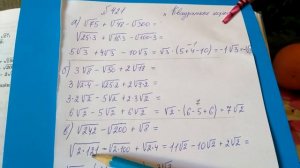 № 421
Квадратные корни
а) √75 + √48 − √300 =
√25·3 + √16·3 − √100·3 =
5√3 + 4√3 − 10√3 = √3 · (5+4−10) = −1√3
б) 3√8 − √50 + 2√18 =
3√2·4 − √25·2 + 2√9·2 =
3·2√2 − 5√2 + 2·3√2 =
6√2 − 5√2 + 6√2 = √2 · (6−5+6) = 7√2
в) √242 − √200 + √8 =
√2·121 − √2·100 + √2·4 = 11√2 − 10√2 + 2√2 =